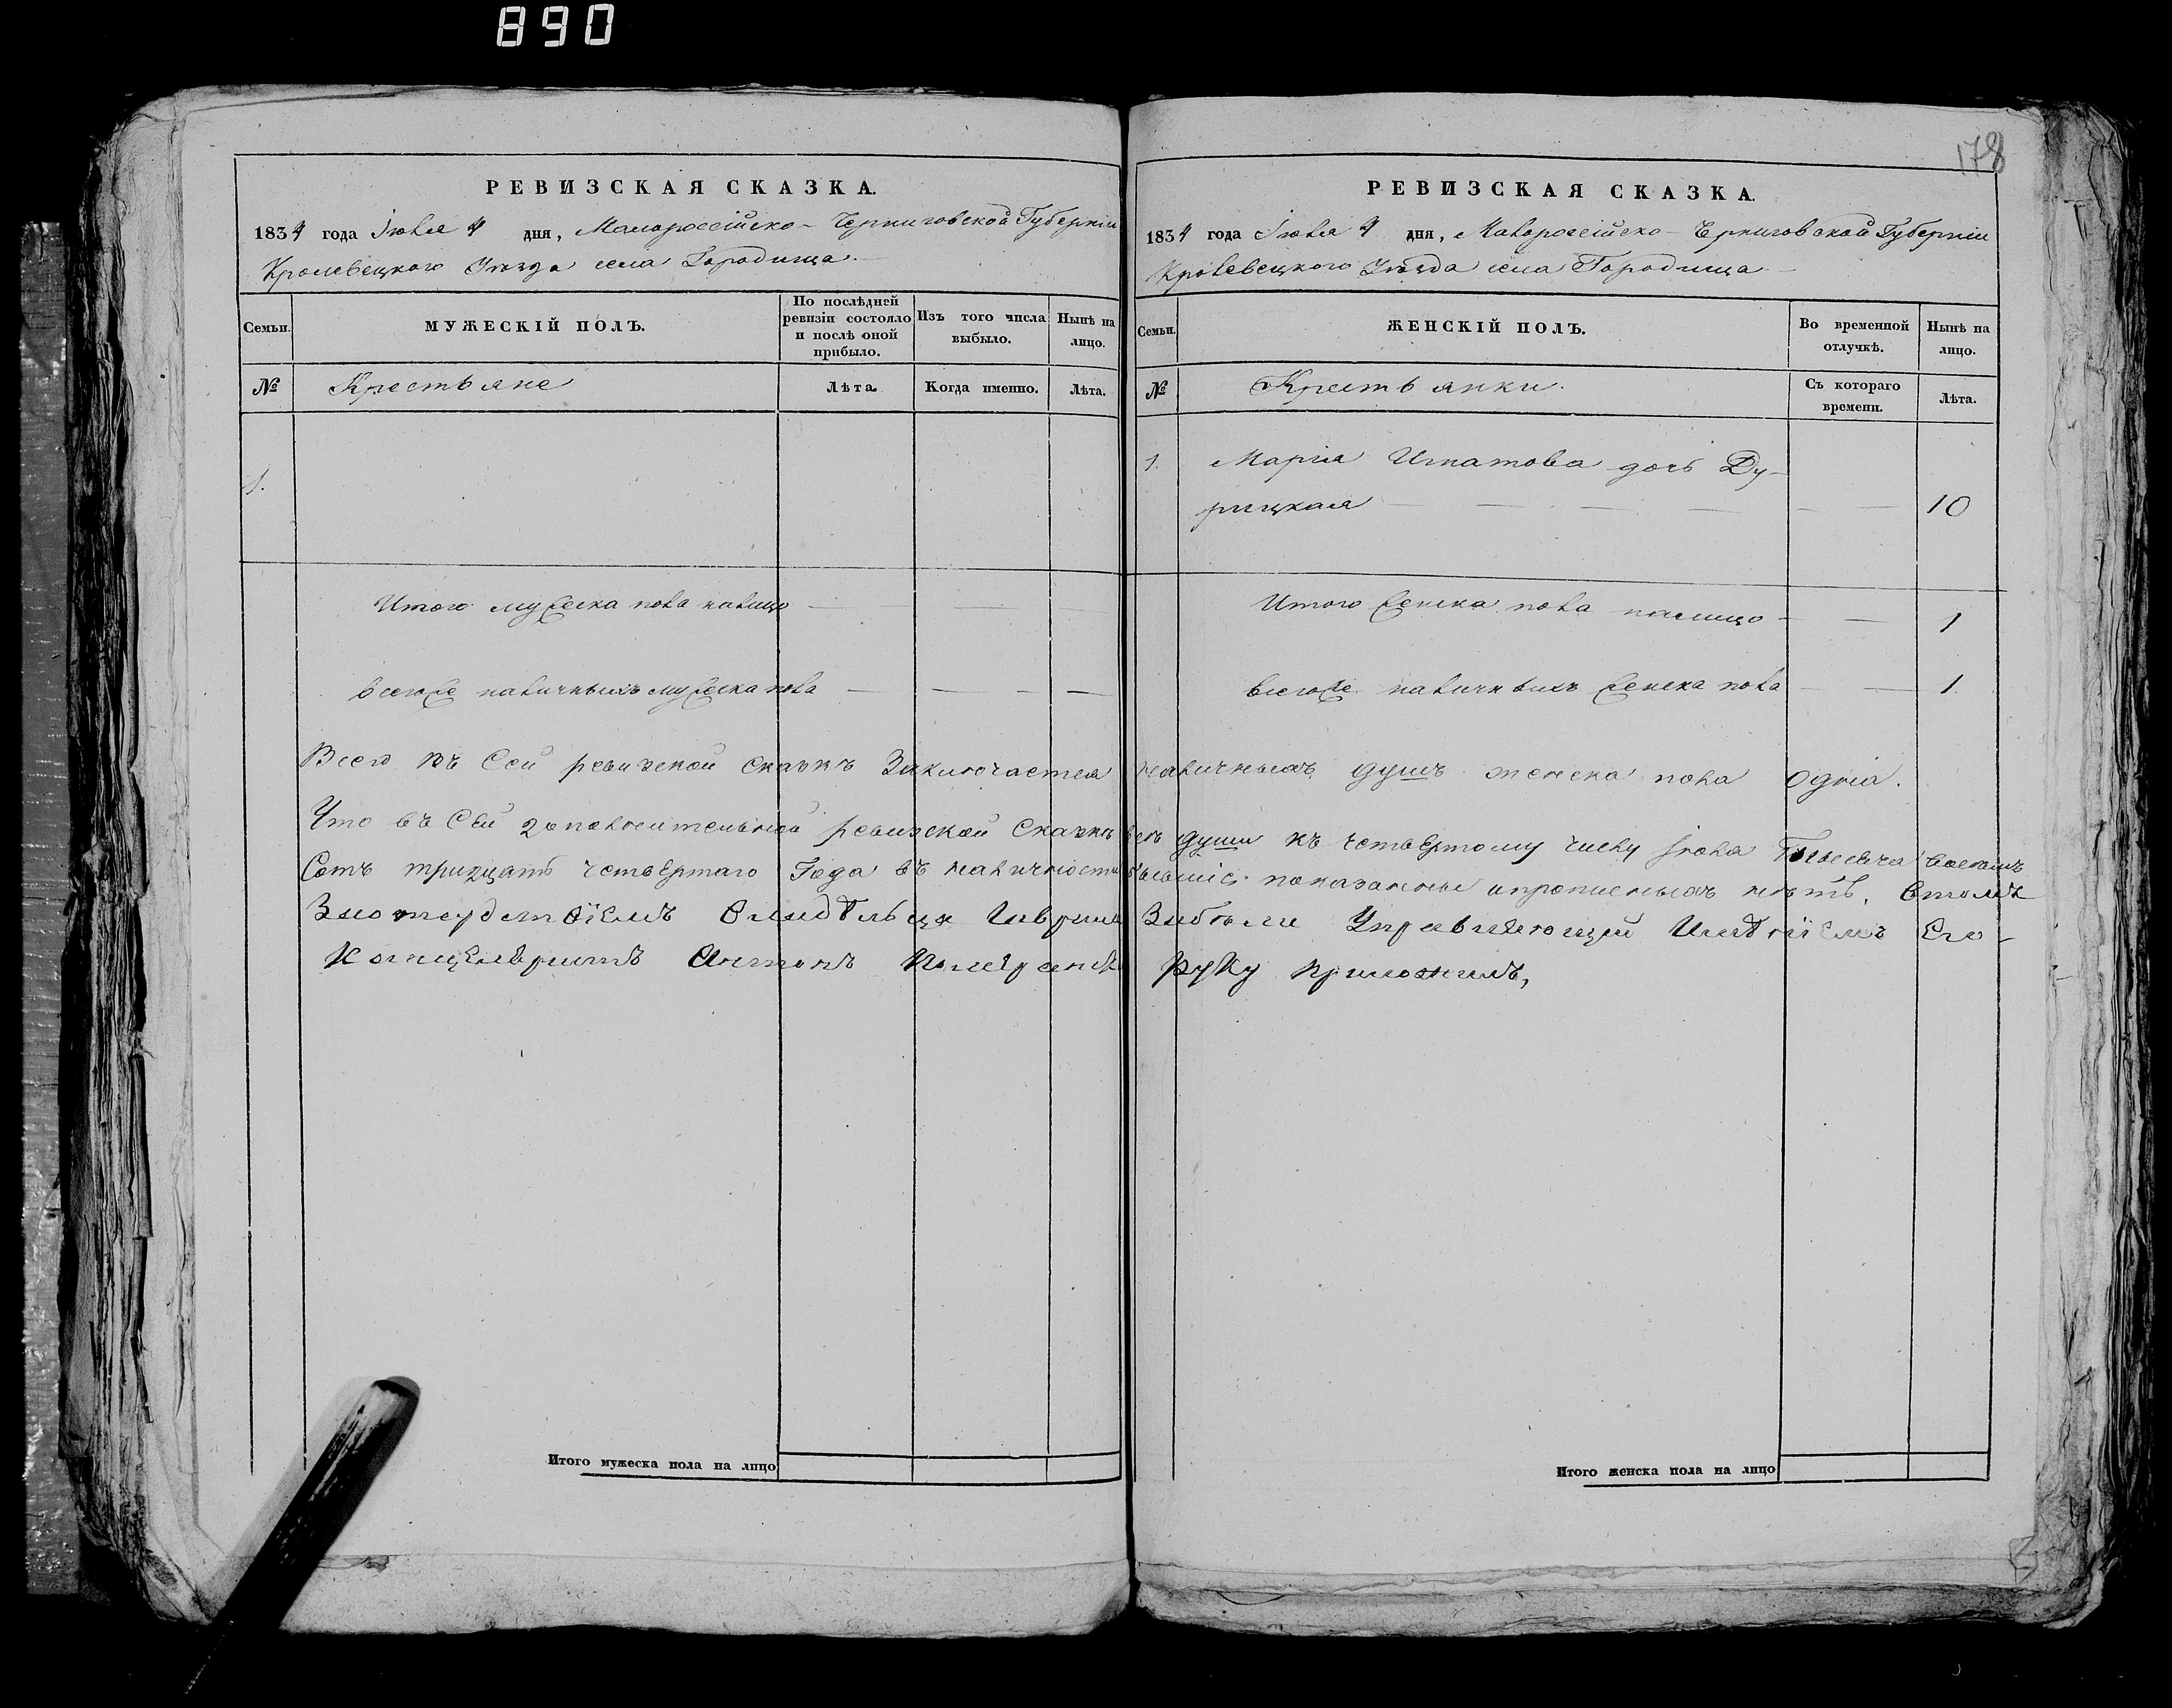 890
178
РЕВИЗСКАЯ СКАЗКА.
1834 года Іюля 4 дня, Малороссійско-Черниговской Губерніи
Кролевецкого Уѣзда села Городища.
Семьи. МУЖЕСКІЙ ПОЛЪ. По послѣдней ревизіи состояло и послѣ оной прибыло. Изъ того числа выбыло. Нынѣ на лицо.
№ Крестьяне Лѣта. Когда именно. Лѣта.
1.
Итого мужеска пола налицо —
всегоже наличныхъ мужеска пола — — — —
РЕВИЗСКАЯ СКАЗКА.
1834 года Іюля 4 дня, Малоросейско-Черниговской Губерніи
Кролевецкого Уѣзда села Городища
Семьи. ЖЕНСКІЙ ПОЛЪ. Во временной отлучкѣ. Нынѣ на лицо.
№ Крестьянки. Съ котораго времени. Лѣта.
1. Марія Игнатова дочь Ду-
рицкая — — — — — — 10
Итого женска пола налицо — — 1
всегоже наличныхъ женска пола — — 1
Всего въ Сей ревизской сказкѣ Заключается наличныхъ душъ женска пола одна.
Что въ Сей дополнительной ревизской Сказкѣ всѣ души къ четвертому числу іюля Тысяча восемъ
Сотъ тридцать четвертаго Года въ наличности бывшіе показанны ипрописныхъ нѣтъ. Втомъ
За Управляющій Имѣніемъ Его
Антонъ руку приложилъ,
Итого мужеска пола на лицо
Итого женска пола на лицо